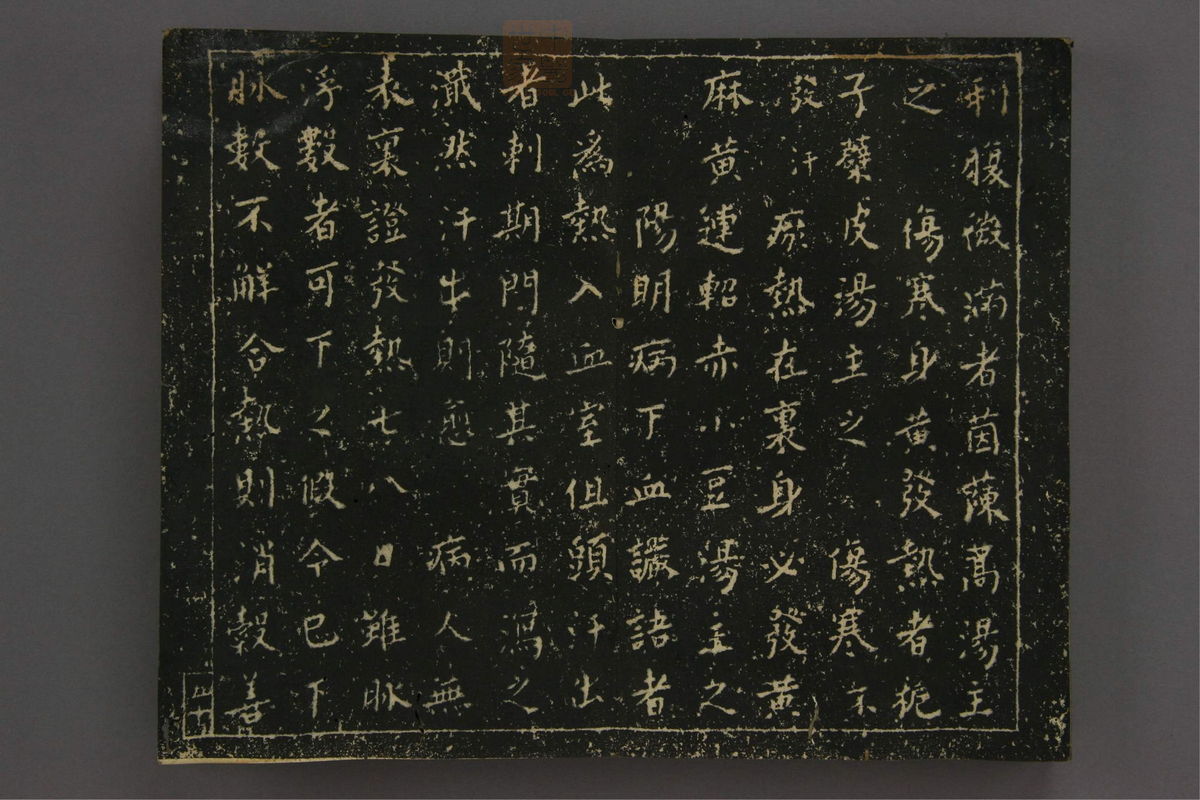 利腹微滿者茵蔯蒿湯主
之 傷寒身黃發熱者梔
子蘗皮湯主之 傷寒不
發汗 瘀熱在裏身必發黃
麻黃連軺赤小豆湯主之
陽明病下血讝語者
此爲熱入血室但頭汗出
者刺期門隨其實而瀉之
濈然汗出則愈 病人無
表裏證發熱七八日雖脉
浮數者可下之假令已下
脉數不解合熱則消穀善